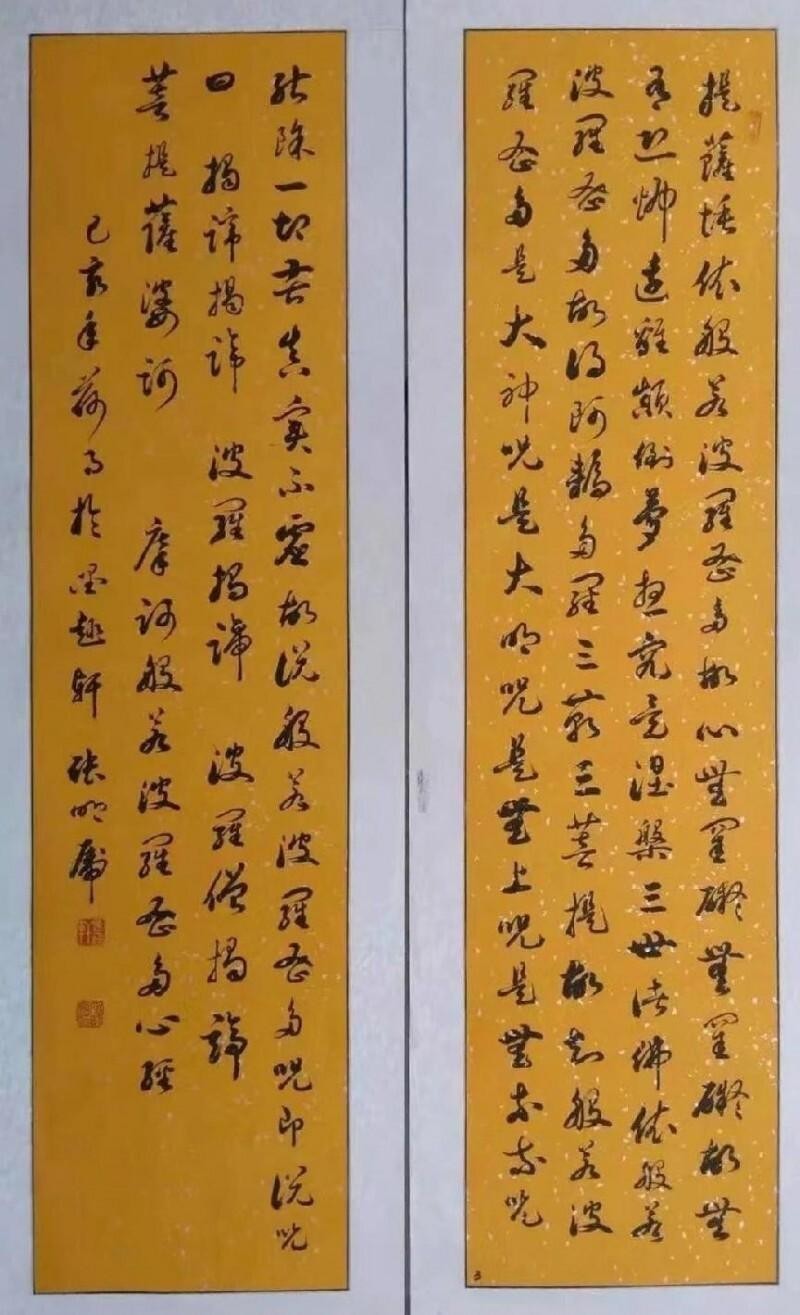 提薩埵依般若波羅蜜多故心無罣礙無罣礙故無
有恐怖遠離顛倒夢想究竟涅槃三世諸佛依般若
波羅蜜多故得阿耨多羅三藐三菩提故知般若波
羅蜜多是大神呪是大明呪是無上呪是無等等呪
3
能除一切苦真實不虛故說般若波羅蜜多呪即說呪
曰 揭諦揭諦 波羅揭諦 波羅僧揭諦
菩提薩婆訶 摩訶般若波羅蜜多心經
己亥年荷月於墨趣軒 張明